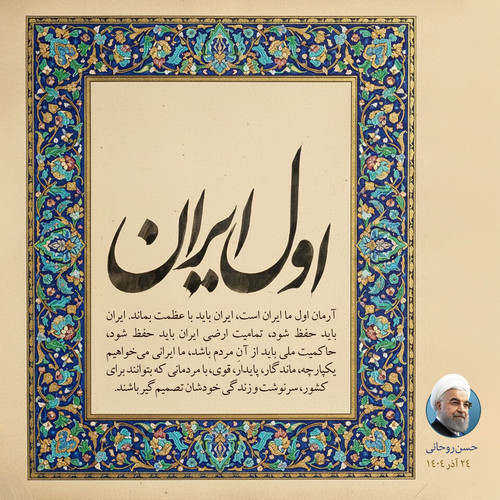 اول ایران
آرمان اول ما ایران است، ایران باید با عظمت بماند. ایران
باید حفظ شود، تمامیت ارضی ایران باید حفظ شود،
حاکمیت ملی باید از آن مردم باشد، ما ایرانی می‌خواهیم
یکپارچه، ماندگار، پایدار، قوی، با مردمانی که بتوانند برای
کشور، سرنوشت و زندگی خودشان تصمیم‌گیر باشند.
حسن روحانی
۲۴ آذر ۱۴۰۴